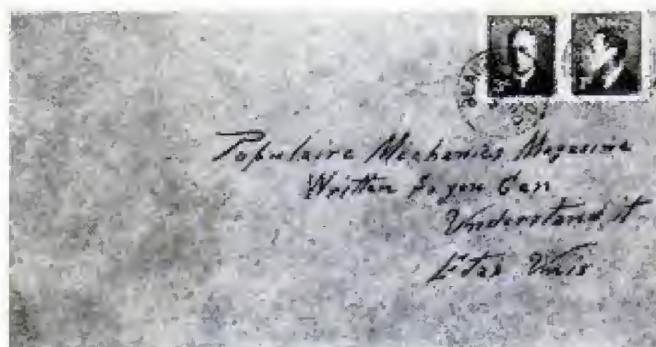 CANADA
Populaire Mechanics Magasine
Written So you Can
Understand it
Etas Unis